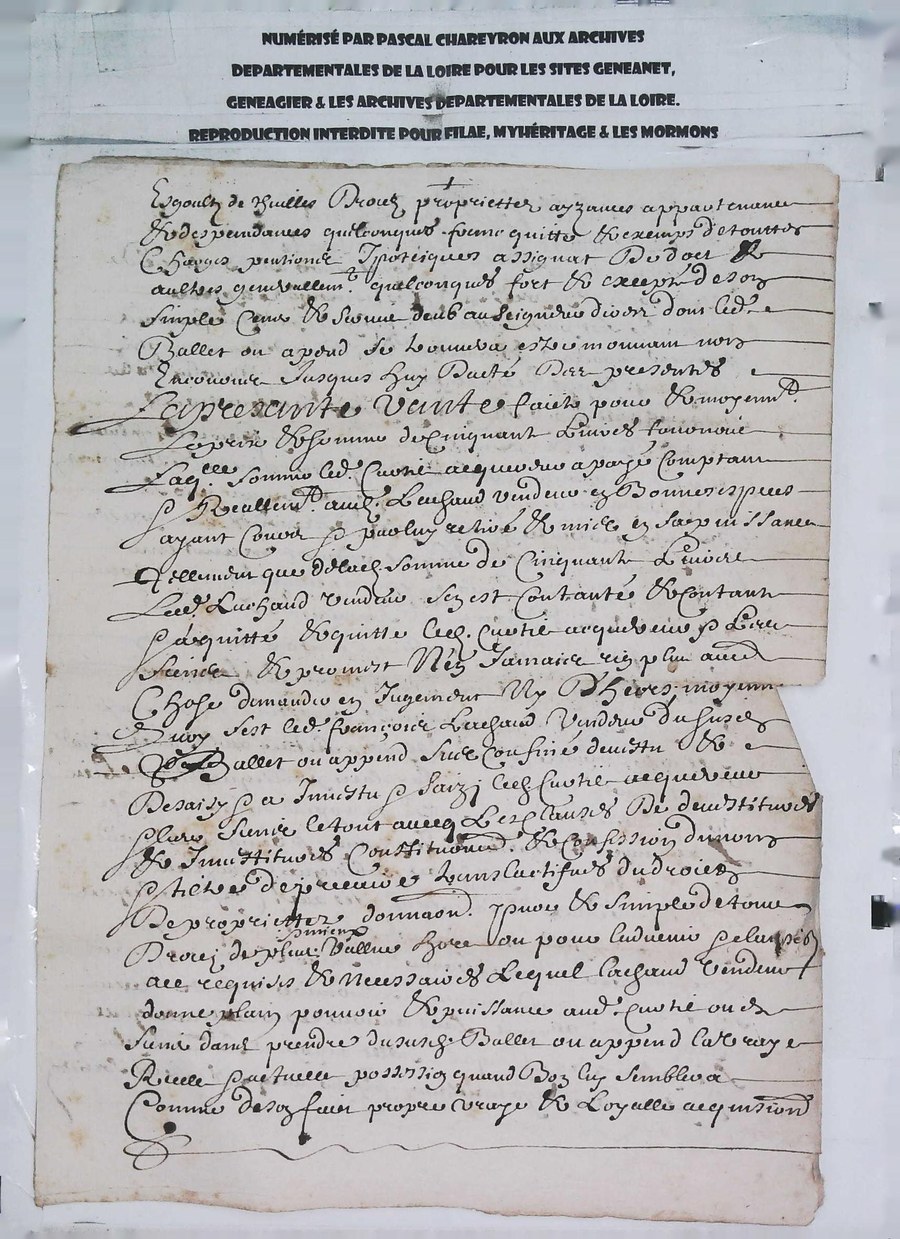 NUMÉRISÉ PAR PASCAL CHAREYRON AUX ARCHIVES
DEPARTEMENTALES DE LA LOIRE POUR LES SITES GENEANET,
GENEAGIER & LES ARCHIVES DEPARTEMENTALES DE LA LOIRE.
REPRODUCTION INTERDITE POUR FILAE, MYHÉRITAGE & LES MORMONS
Esgoultz de thuilles proprietter ayzances appartenances
& despendances quelconques franc quitte & exempt de touttes
Charges pentions Ipoteiques assignat
aultres generallemt quelconques fort & excepté de son
simple Cens & deub au Seigneur direct dont led.
Ballet ou apend se trouvera estre mouvant non
Encourue Jusques huy Datté Des presentes
La presante Vante faicte pour & moyennt
Le prix & somme de Cinquante Livres tournois
Laqlle somme led. acquereur a payé Comptant
Reallemt aud. Lachaud vendeur en Bonnes espèces
ayant Cours p par luy retiré & mise en sa puissance
Tellement que de lad. somme de Cinquante Livres
Led. Lachaud vendeur s'en est Contanté & Contante
p a quitté & quitte led. acquereur p Les
siens & promist N'en Jamais rien plus aud.
Chose demander en Jugement Ny Dhors moyennt
Quoy s'est led. françois Lachaud Vendeur du susd.
Ballet ou append sus Confiné devestu &
Desaisy p a Investu p saizi led. acquereur
p les siens le tout avecq Les Clauses De devestitures
& Investitures Constitution & Confession du nom
p tiltre de precaire translactifves du droict
De proprietter donnaon. pure & simple de toute
de plus Vallue hors ou pour l'advenir
requises & Necessaires Lequel Lachaud Vendeur
donne plain pouvoir & puissance aud. ou es
siens dans prendre du susd. Ballet ou append la vraye
Reelle p actuelle possession quand Bon luy semblera
Comme de son fait propre vraye & Loyalle acquisition